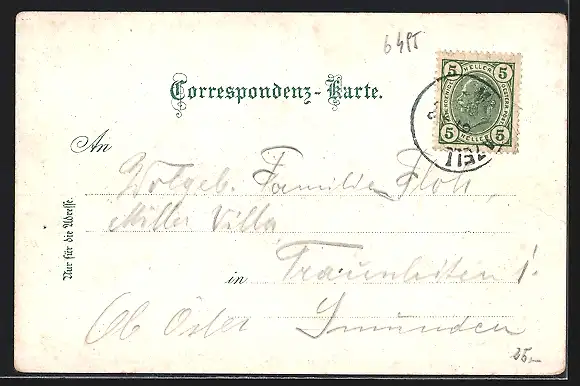 6485
Correspondenz-Karte.
5 HELLER 5
5 HELLER 5
ZELL
An
Wolgeb. Familie Floh,
Miller Villa
Nur für die Adresse.
in Traunleiten
Ob Öster Gmunden
25.-